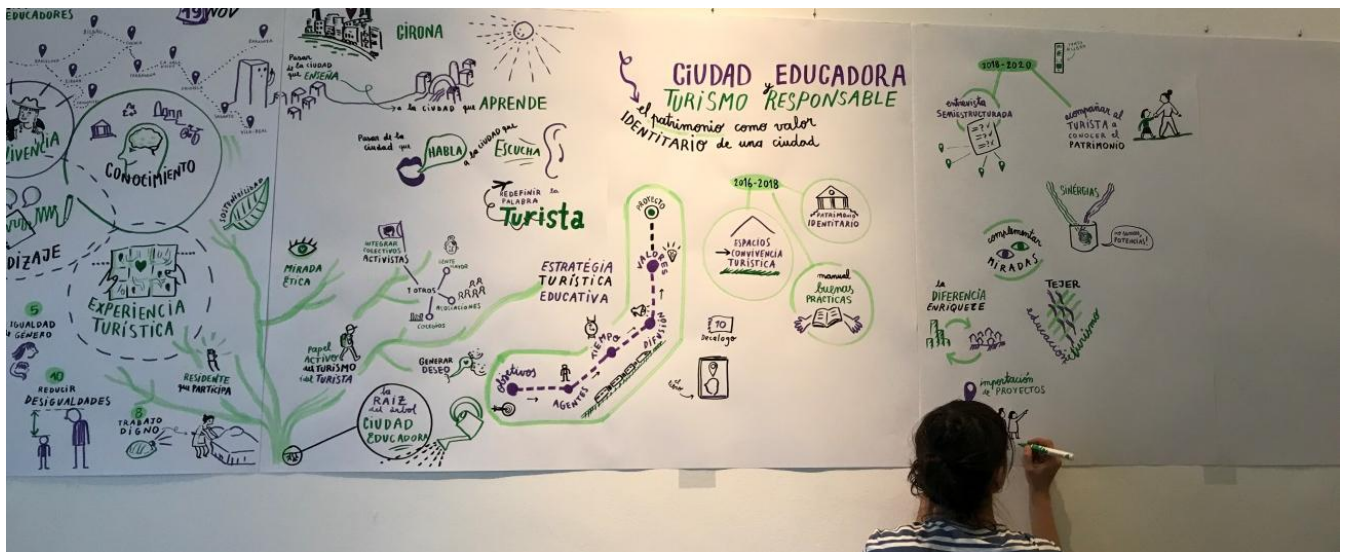 EDUCADORES
19 NOV
BILBAO
GRANOLLERS
VILA-REAL
VIVENCIA
CONOCIMIENTO
DIZAJE
EXPERIENCIA
TURÍSTICA
5
IGUALDAD
de GÉNERO
10
REDUCIR
DESIGUALDADES
8
TRABAJO
DIGNO
RESIDENTE
que PARTICIPA
SOSTENIBILIDAD
GIRONA
Pasar
de la CIUDAD
que ENSEÑA
a la CIUDAD que APRENDE
Pasar de la
ciudad que
HABLA
a la CIUDAD que
ESCUCHA
REDEFINIR la
PALABRA
Turista
MIRADA
ÉTICA
INTEGRAR
COLECTIVOS
ACTIVISTAS
Y OTROS
GENTE
MAYOR
ASOCIACIONES
COLEGIOS
Papel
ACTIVO
del TURISMO
i del TURISTA
GENERAR
DESEO
la
RAÍZ
del árbol
CIUDAD
EDUCADORA
ESTRATÉGIA
TURÍSTICA
EDUCATIVA
PROYECTO
VALORES
DIFUSIÓN
TIEMPO
AGENTES
Objetivos
10
DECÁLOGO
CIUDAD EDUCADORA
y
TURISMO RESPONSABLE
el patrimonio como valor
IDENTITARIO de una ciudad
2016-2018
ESPACIOS
CONVIVENCIA
TURÍSTICA
PATRIMONIO
IDENTITARIO
manual
buenas
PRÁCTICAS
2018-2020
entrevista
SEMIESTRUCTURADA
acompañar al
TURISTA a
CONOCER el
PATRIMONIO
SINÉRGIAS
NO SUMAN,
POTENCIAS!
complementar
MIRADAS
la
DIFERENCIA
ENRIQUETE
TEJER
educación
civismo
importación
de PROYECTOS